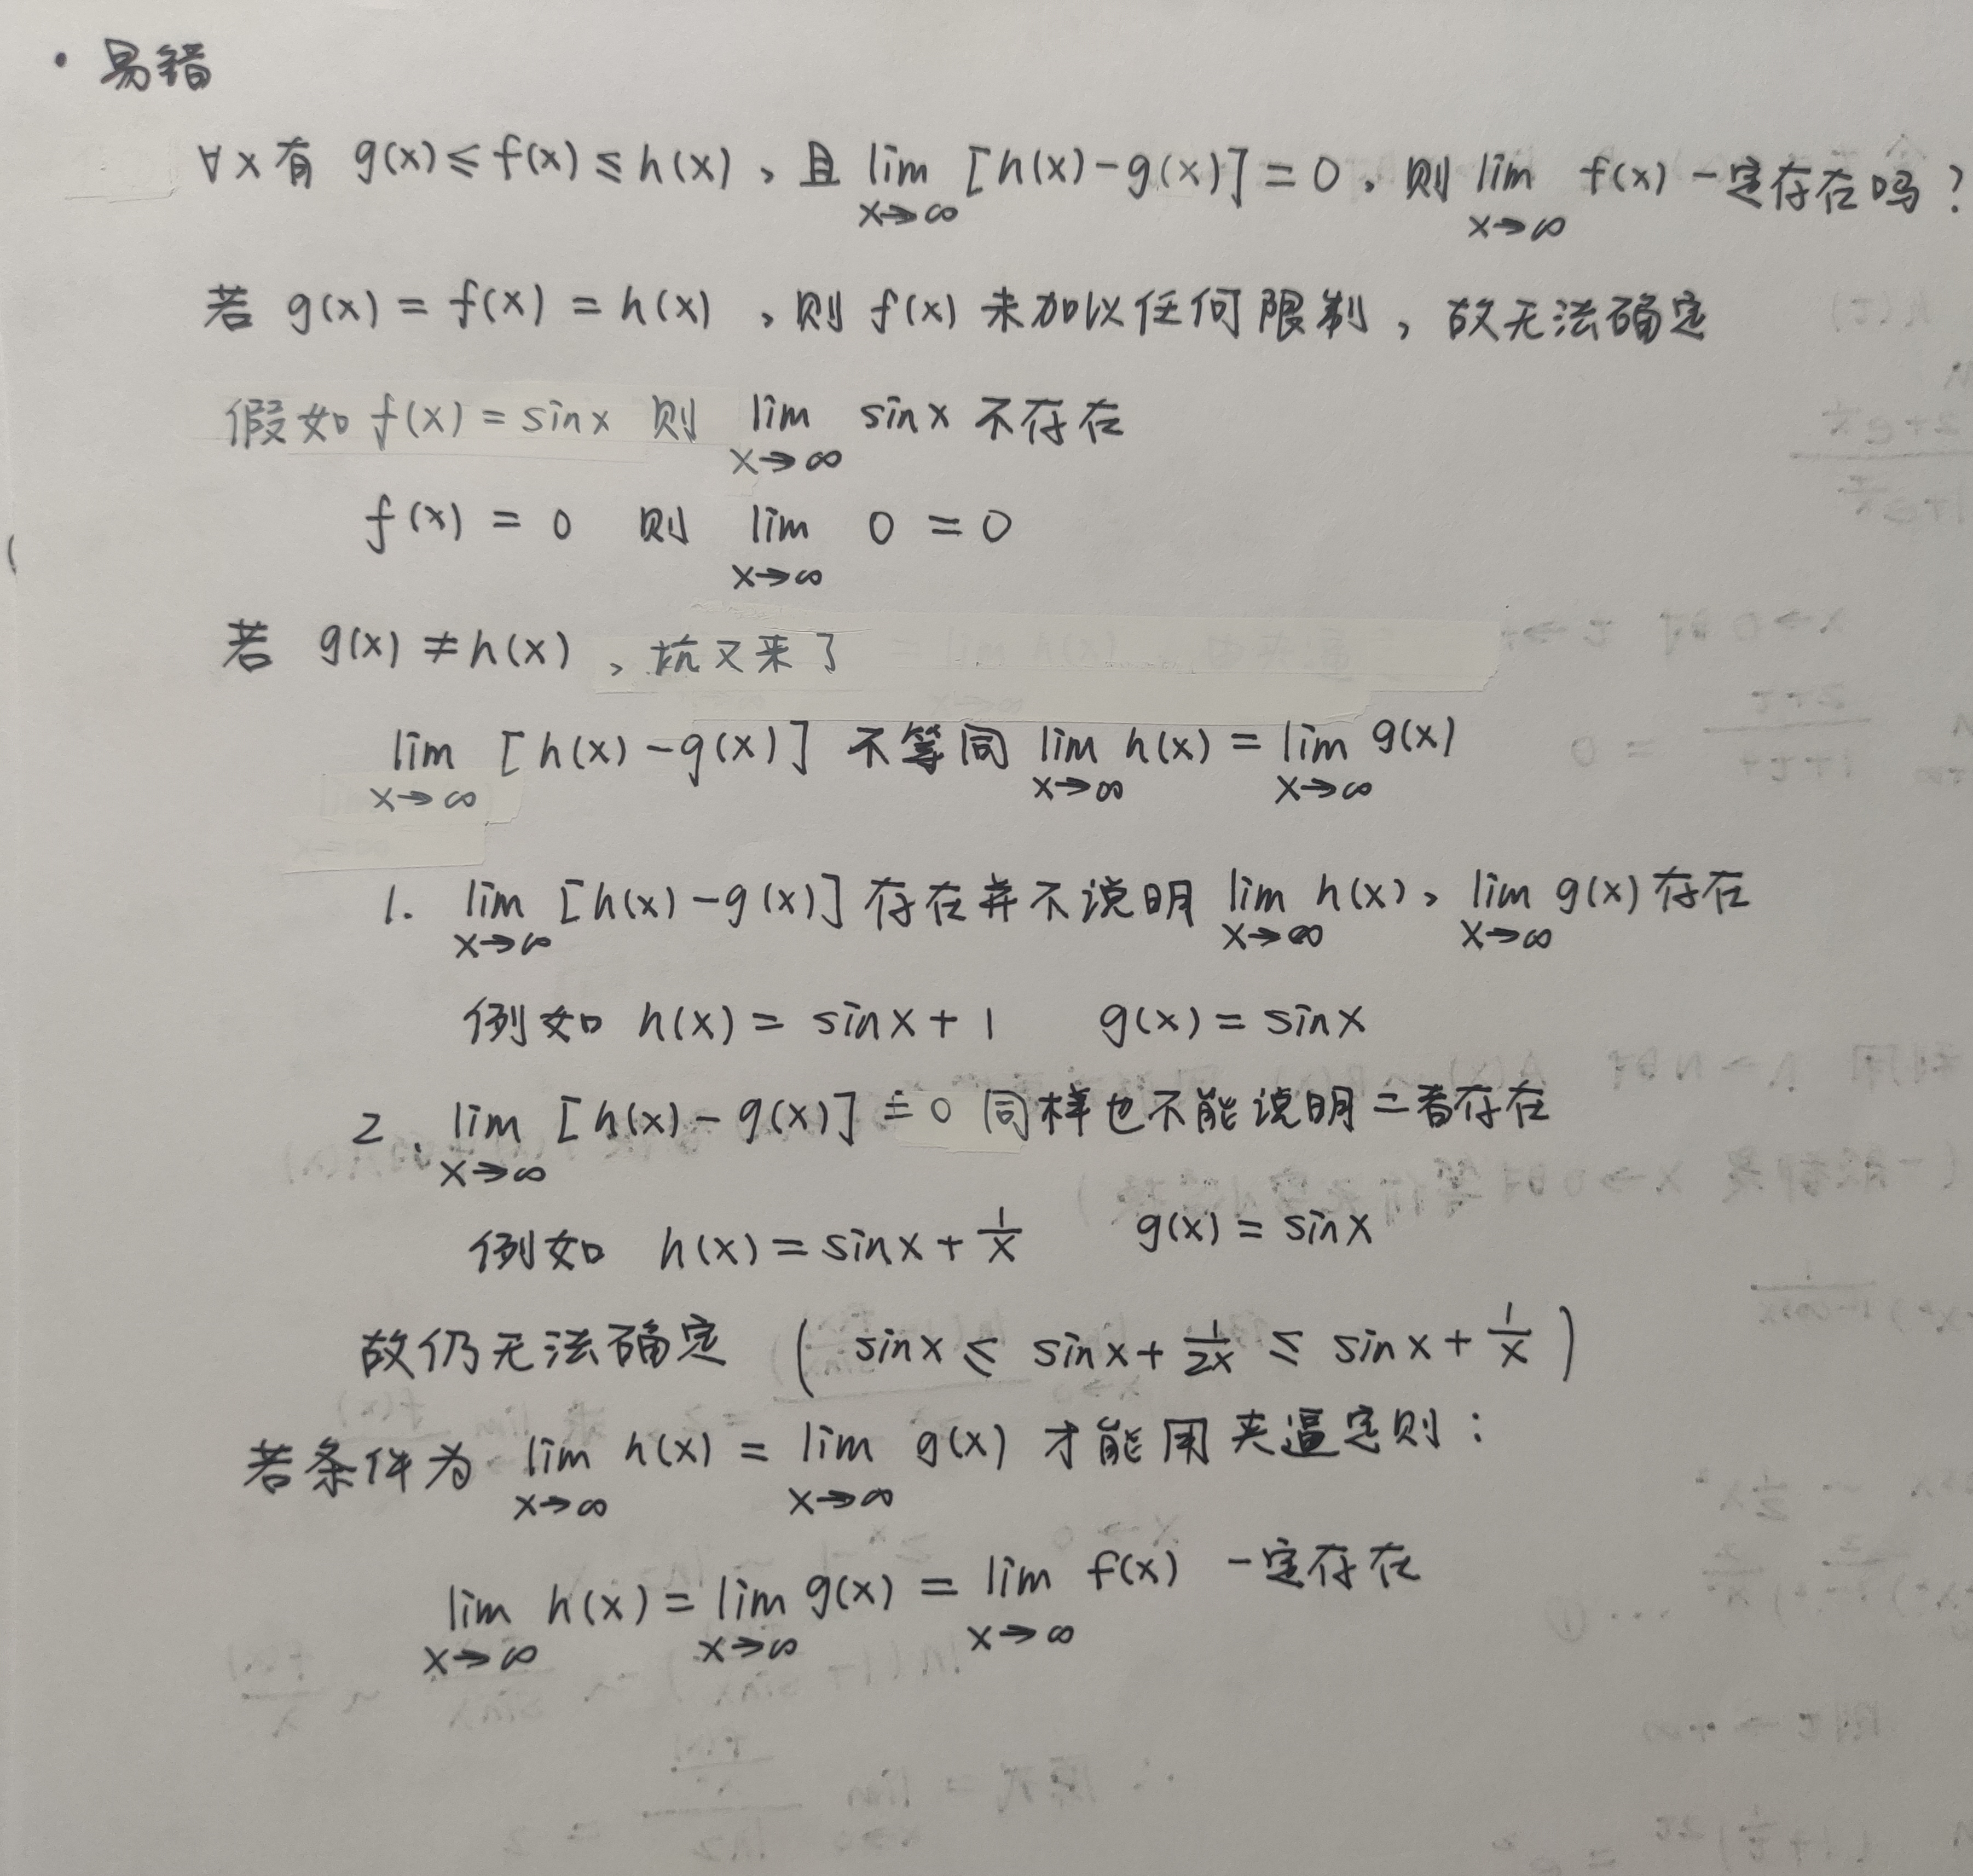 · 易错
∀x有 g(x)≤f(x)≤h(x)、且 lim x→∞ [h(x)-g(x)]=0、则 lim x→∞ f(x) 一定存在吗?
若 g(x) = f(x) = h(x) 、则 f(x) 未加以任何限制,故无法确定
假如 f(x)=sinx 则 lim x→∞ sinx 不存在
f(x) = 0 则 lim x→∞ 0 = 0
若 g(x)≠h(x)、坑又来了
lim x→∞ [h(x)-g(x)] 不等同 lim x→∞ h(x) = lim x→∞ g(x)
1. lim x→∞ [h(x)-g(x)] 存在并不说明 lim x→∞ h(x)、lim x→∞ g(x) 存在
例如 h(x) = sinx+1 g(x) = sinx
2. lim x→∞ [h(x)-g(x)] = 0 同样也不能说明二者存在
例如 h(x) = sinx + 1/x g(x) = sinx
故仍无法确定 ( sinx ≤ sinx + 1/2x ≤ sinx + 1/x )
若条件为 lim x→∞ h(x) = lim x→∞ g(x) 才能用夹逼定则:
lim x→∞ h(x) = lim x→∞ g(x) = lim x→∞ f(x) 一定存在